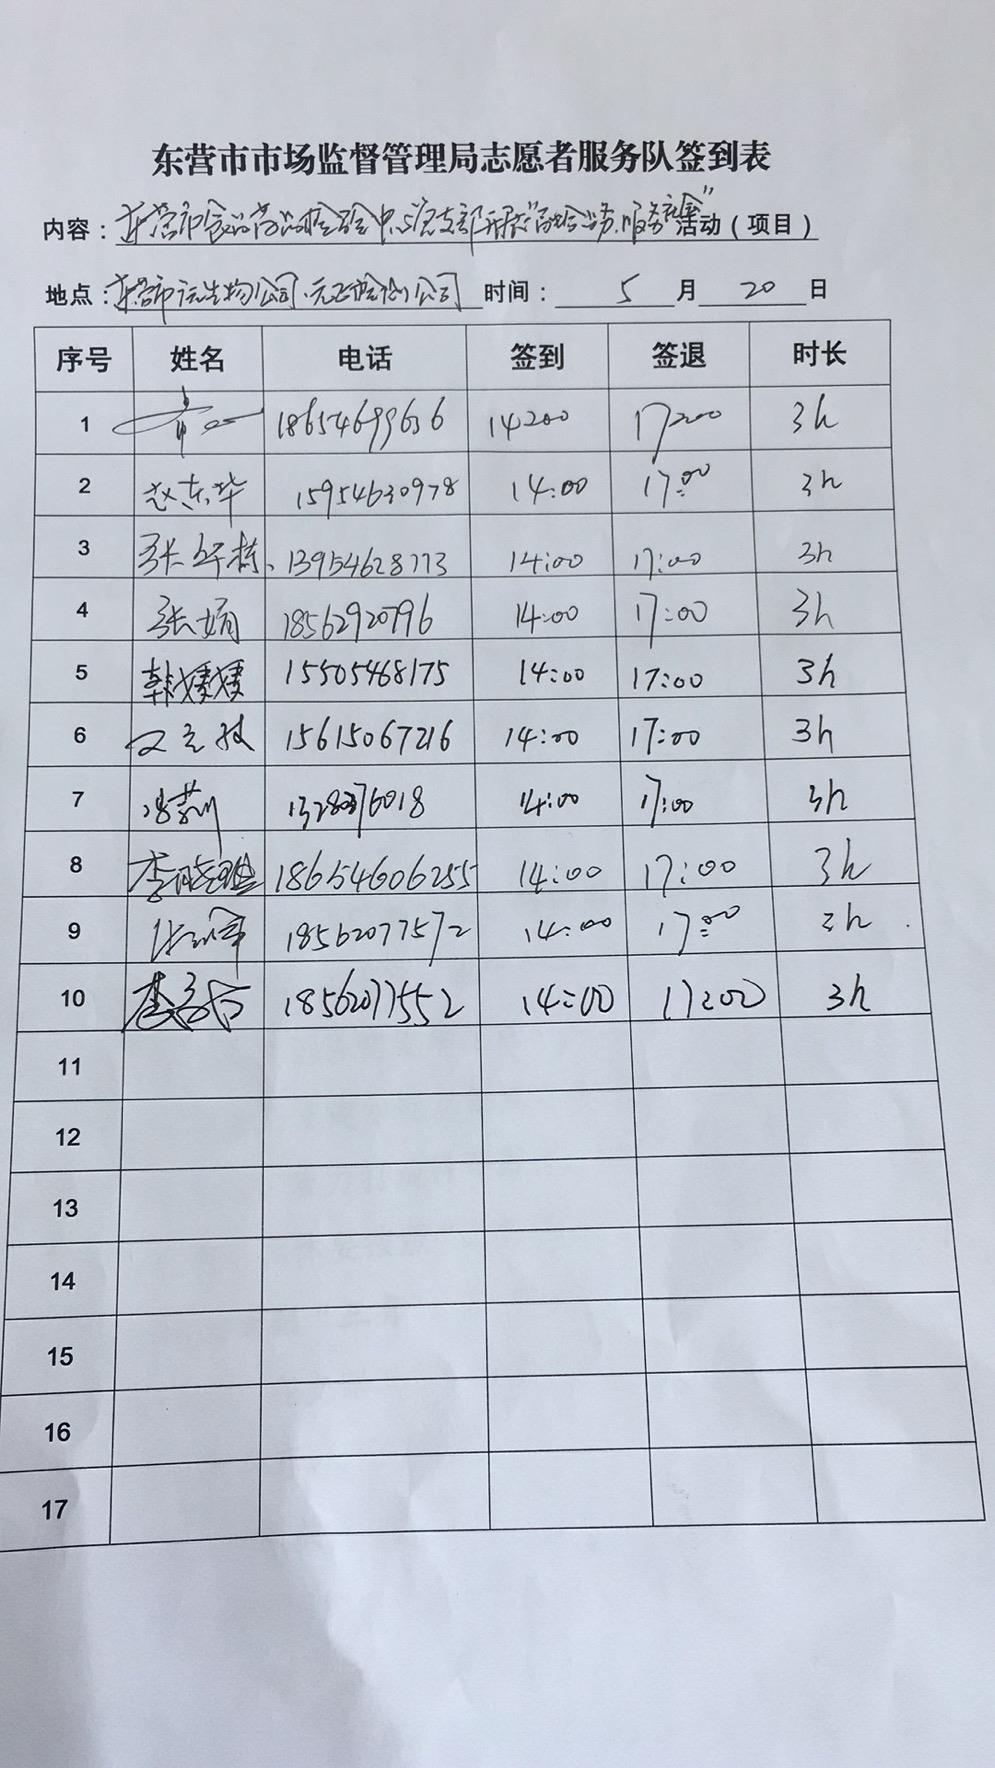 东营市市场监督管理局志愿者服务队签到表
内容：东营市食品药品检验中心党支部开展"融合业务、服务社会"活动（项目）
地点：东营市 生物公司、元正检测公司 时间： 5 月 20 日
序号 姓名 电话 签到 签退 时长
1 18654699636 14:00 17:00 3h
2 赵东华 15954630978 14:00 17:00 3h
3 张 栋 13954628773 14:00 17:00 3h
4 张娟 18562920796 14:00 17:00 3h
5 韩媛媛 15505468175 14:00 17:00 3h
6 15615067216 14:00 17:00 3h
7 14:00 17:00 3h
8 李晓 18654606255 14:00 17:00 3h
9 18562077572 14:00 17:00 3h
10 18562077552 14:00 17:00 3h
11
12
13
14
15
16
17